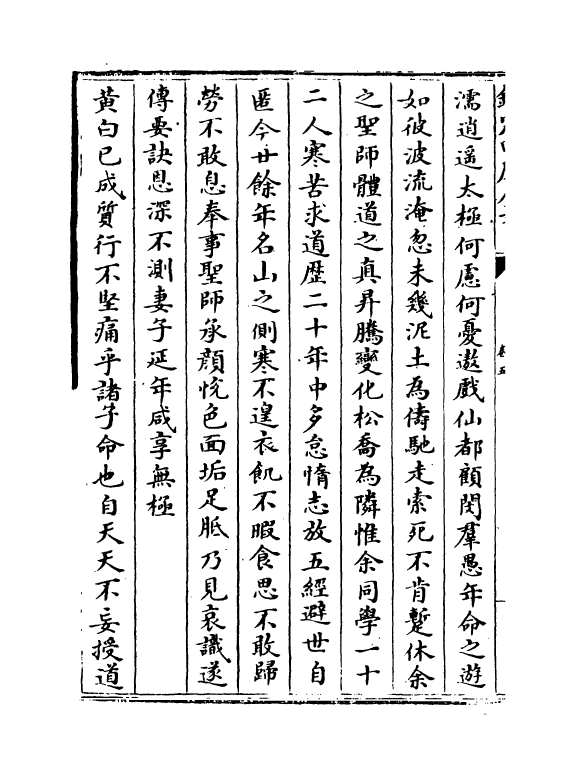 濡逍遥太極何慮何憂遨戲仙都顧閔羣愚年命之遊
如彼波流淹忽未幾泥土為儔馳走索死不肯蹔休余
之聖師體道之真昇騰變化松喬為隣惟余同學一十
二人寒苦求道歴二十年中多怠惰志放五經避世自
匿今廿餘年名山之側寒不遑衣飢不暇食思不敢歸
勞不敢息奉事聖師承顔恱色面垢足胝乃見哀識遂
傳要訣恩深不測妻子延年咸享無極
黄白已成質行不堅痛乎諸子命也自天天不妄授道